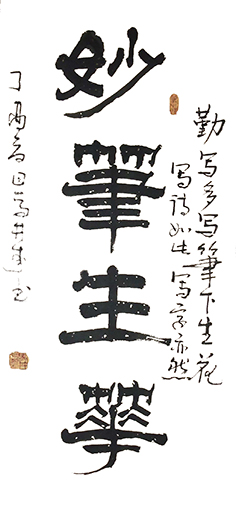 妙筆生華
勤写多写筆下生花
写诗如此写字亦然
丁酉春日书